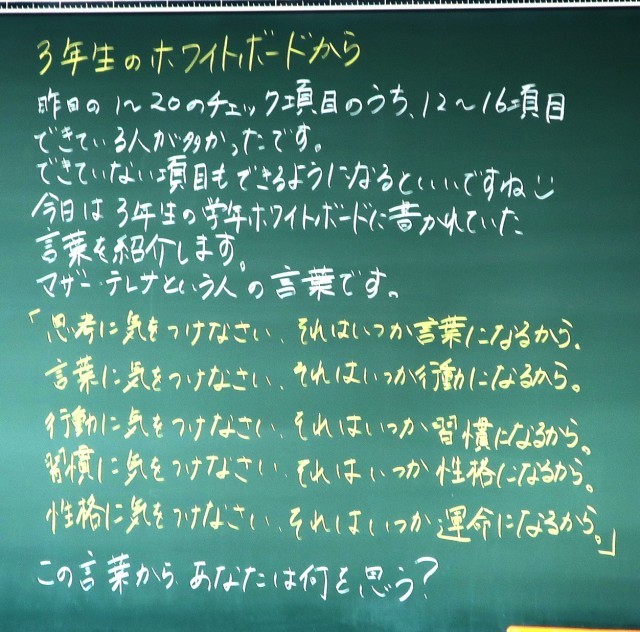 3年生のホワイトボードから
昨日の1～20のチェック項目のうち、12～16項目
できている人が多かったです。
できていない項目もできるようになるといいですね
今日は3年生の学年ホワイトボードに書かれていた
言葉を紹介します。
マザー・テレサという人の言葉です。
「思考に気をつけなさい、それはいつか言葉になるから。
言葉に気をつけなさい、それはいつか行動になるから。
行動に気をつけなさい、それはいつか習慣になるから。
習慣に気をつけなさい、それはいつか性格になるから。
性格に気をつけなさい、それはいつか運命になるから。」
この言葉から、あなたは何を思う?